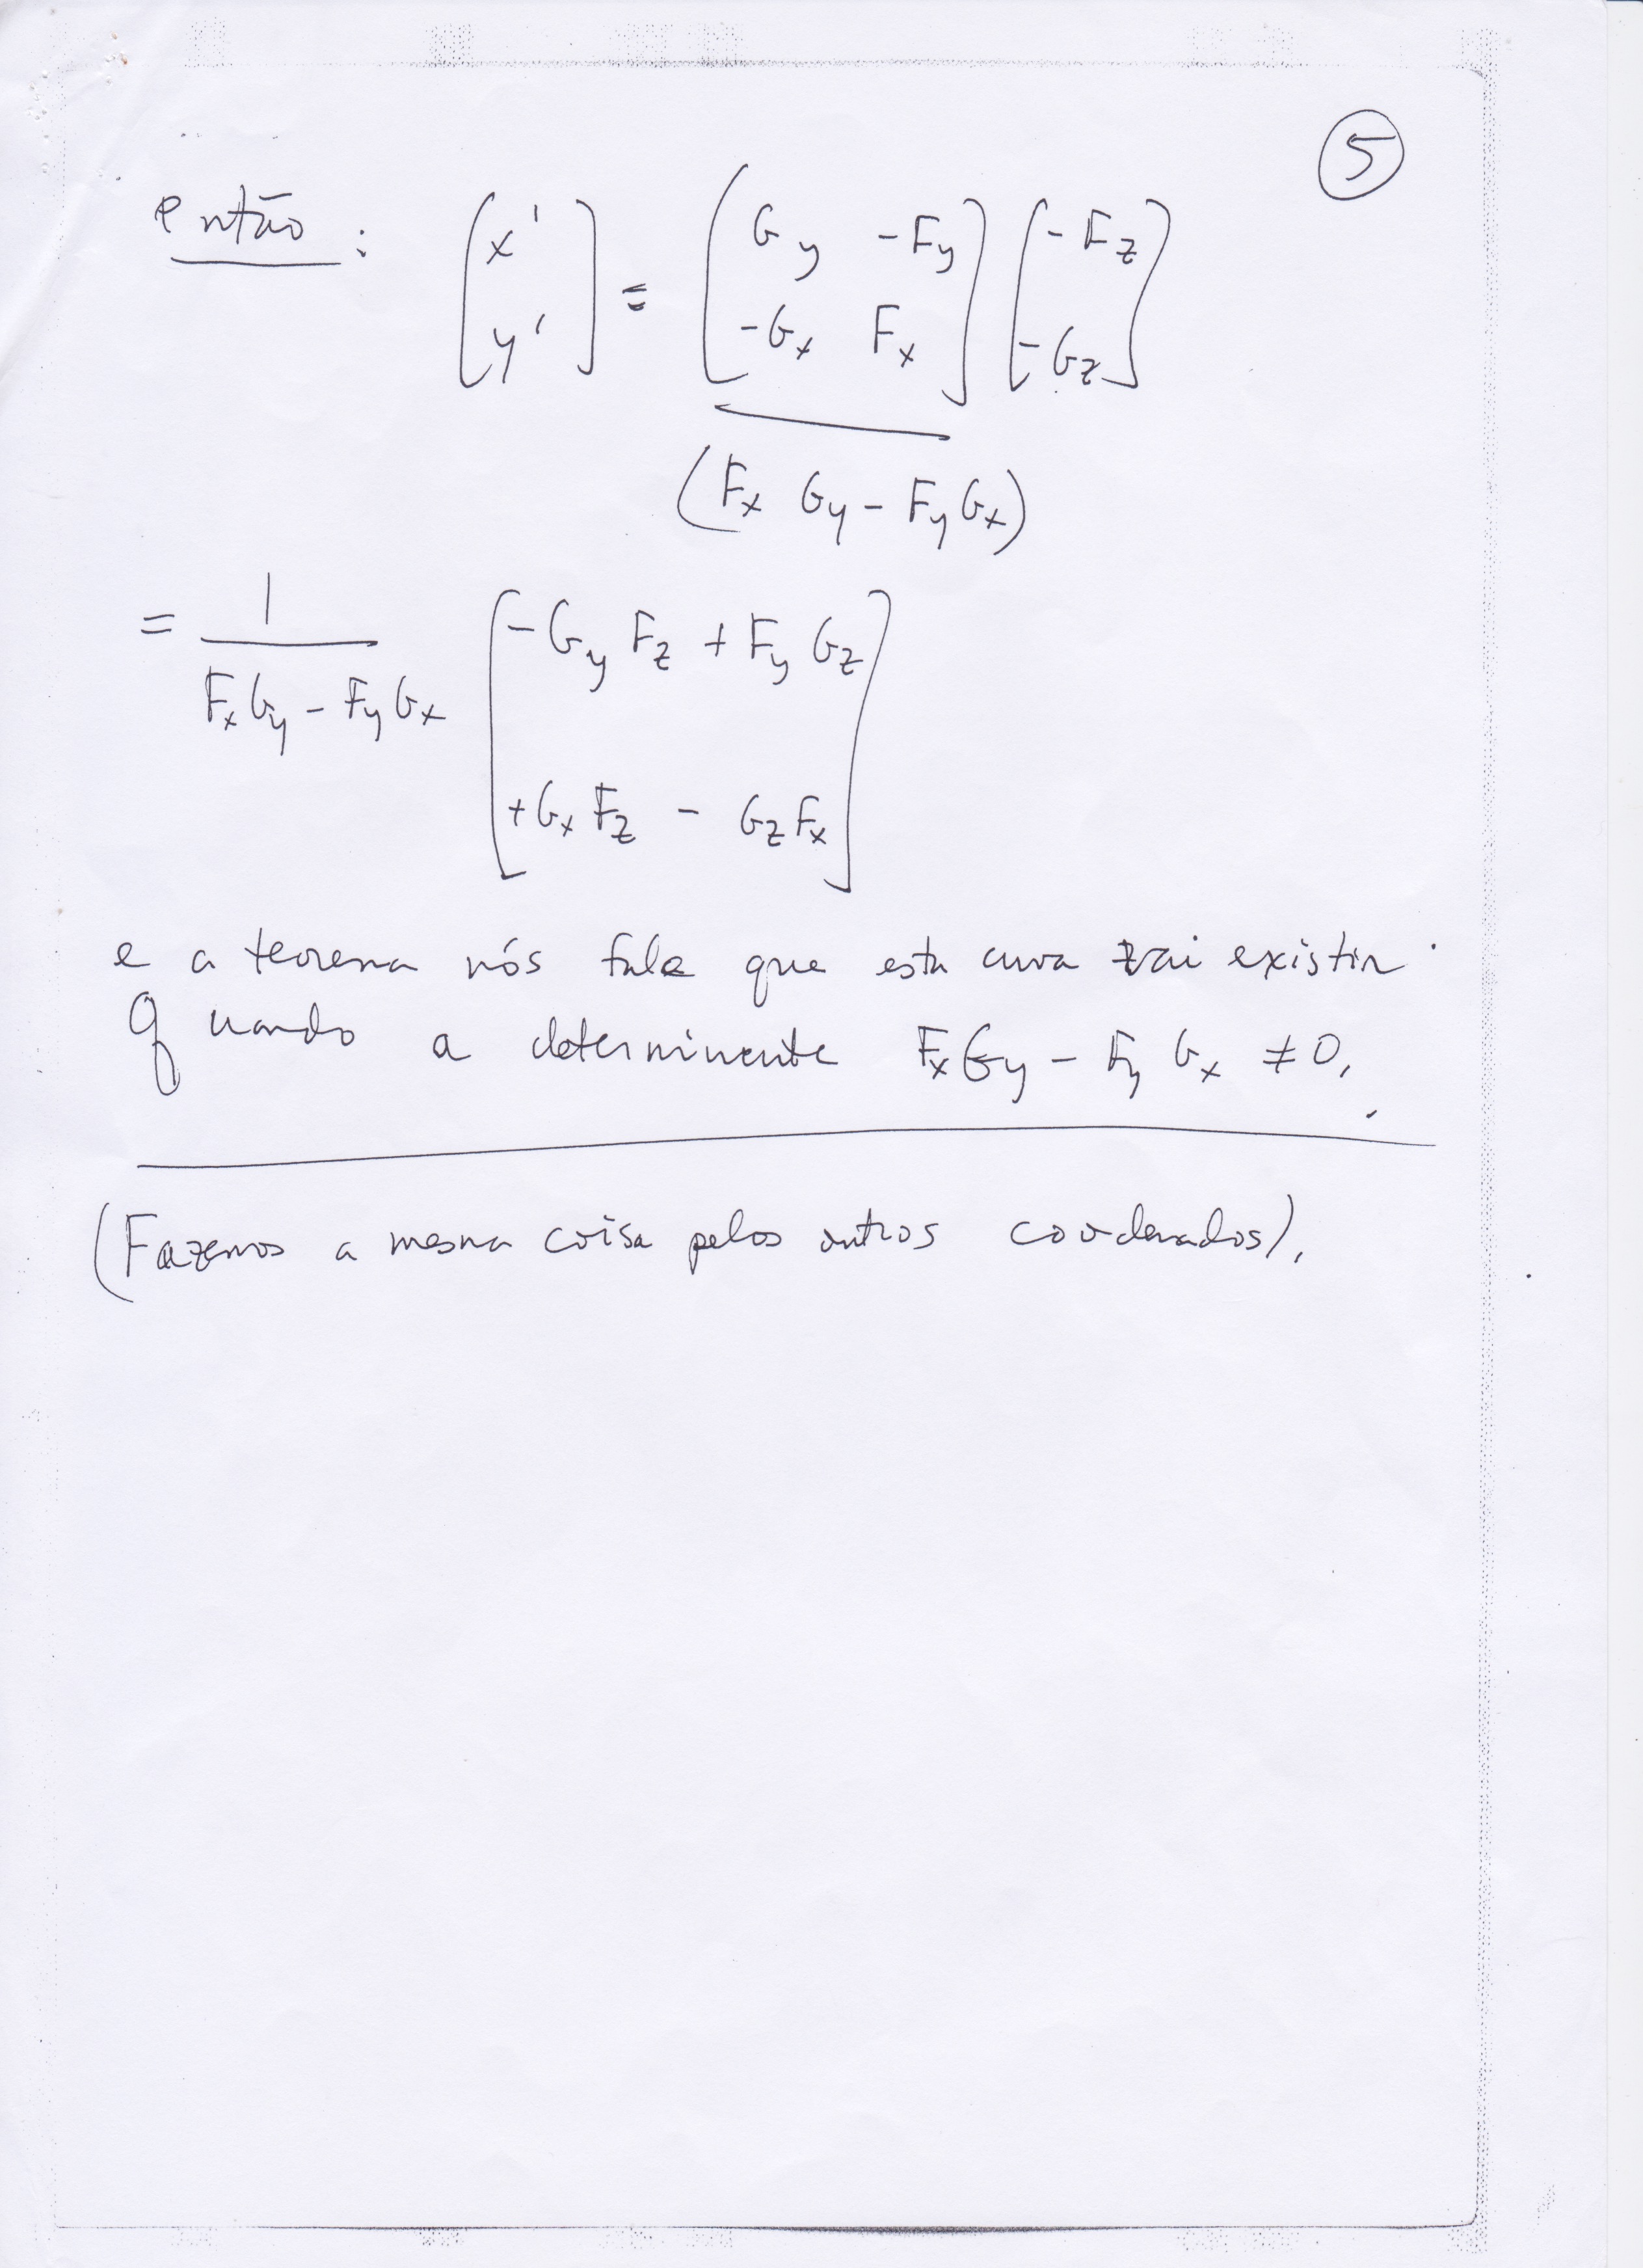 5
então : [x' y'] = [G_y -F_y -G_x F_x] [-F_z -G_z]
(F_x G_y - F_y G_x)
= 1 / (F_x G_y - F_y G_x) [-G_y F_z + F_y G_z +G_x F_z - G_z F_x]
e a teorema nós fala que esta curva vai existir
Quando a determinente F_x G_y - F_y G_x ≠ 0.
(Fazemos a mesma coisa pelos outros coordenados).